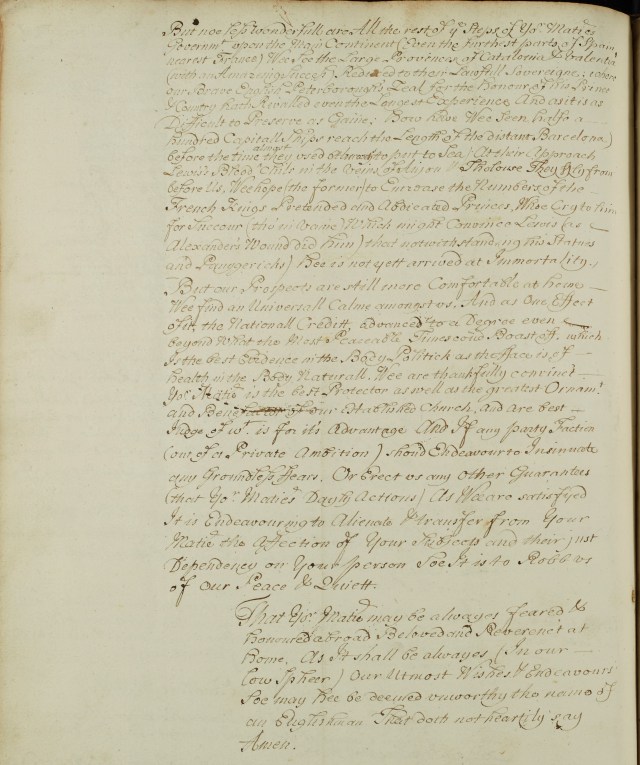 But noe less wonderfull are All the rest of yᵉ Steps of Yoʳ Matieˢ
Governmᵗ upon the Main Continent (Even the furthest parts of Spain
nearest France) Wee See the Large Provinces of Catalonia & Valentia
(with an Amazeing Success) Reduced to their Lawfull Sovereigne; where
our Brave English Peterborough's Zeal for the Honour of his Prince
& Country hath Rivalled even the Longest Experience And as it is as
Difficult to Preserve as Gaine; How have Wee Seen halfe a
hundred Capitall Ships reach the Length of the distant Barcelona)
before the time they used almost to put to Sea; At their Approach
Lewis's Blood Chils in the Veins of Anjou & Tholouse They Fly from
before Us. Wee hope (the former) to Encrease the Numbers of the
French Kings Pretended and Abdicated Princes, Whoe Cry to him
for Succour (tho' in Vaine) Which might Convince Lewis (as
Alexander's Wound did him) that notwithstanding his Statues
and Panygericks) Hee is not yett arrived at Immortality.
But our Prospects are still more Comfortable at home
Wee find an Universall Calme amongst us. And as One Effect
of it, the Nationall Creditt, advanced to a Degree even
beyond What the Most Peaceable Times could Boast off, which
Is the best Evidence in the Body Politick as the fface is of
health in the Body Naturall. Wee are thankfully convinct
Yoʳ Matie is the best Protector as well as the greatest Ornamᵗ
and of our Established Church, and are best
Judge of wᵗ. is for it's Advantage And If any party Faction
(or of a Private Ambition) should Endeavour to Insinuate
any Groundless ffears, Or Erect us any other Guarantee
(that Yoʳ Matieˢ Dayly Actions) As Wee are satisfyed
It is Endeavouring to Alienate & transfer from Your
Matie the Affection of Your Subjects and their just
Dependency on Your person Soe It is to Robb us
of Our Peace & Quiett.
That Yoʳ Matie may be alwayes feared &
honoured abroad & Beloved and Reverenc't at
Home. As It shall be alwayes (In our
low Spheer) Our Utmost Wishes & Endeavours
Soe may hee be deemed unworthy the name of
an Englishman That doth not heartily say
Amen.